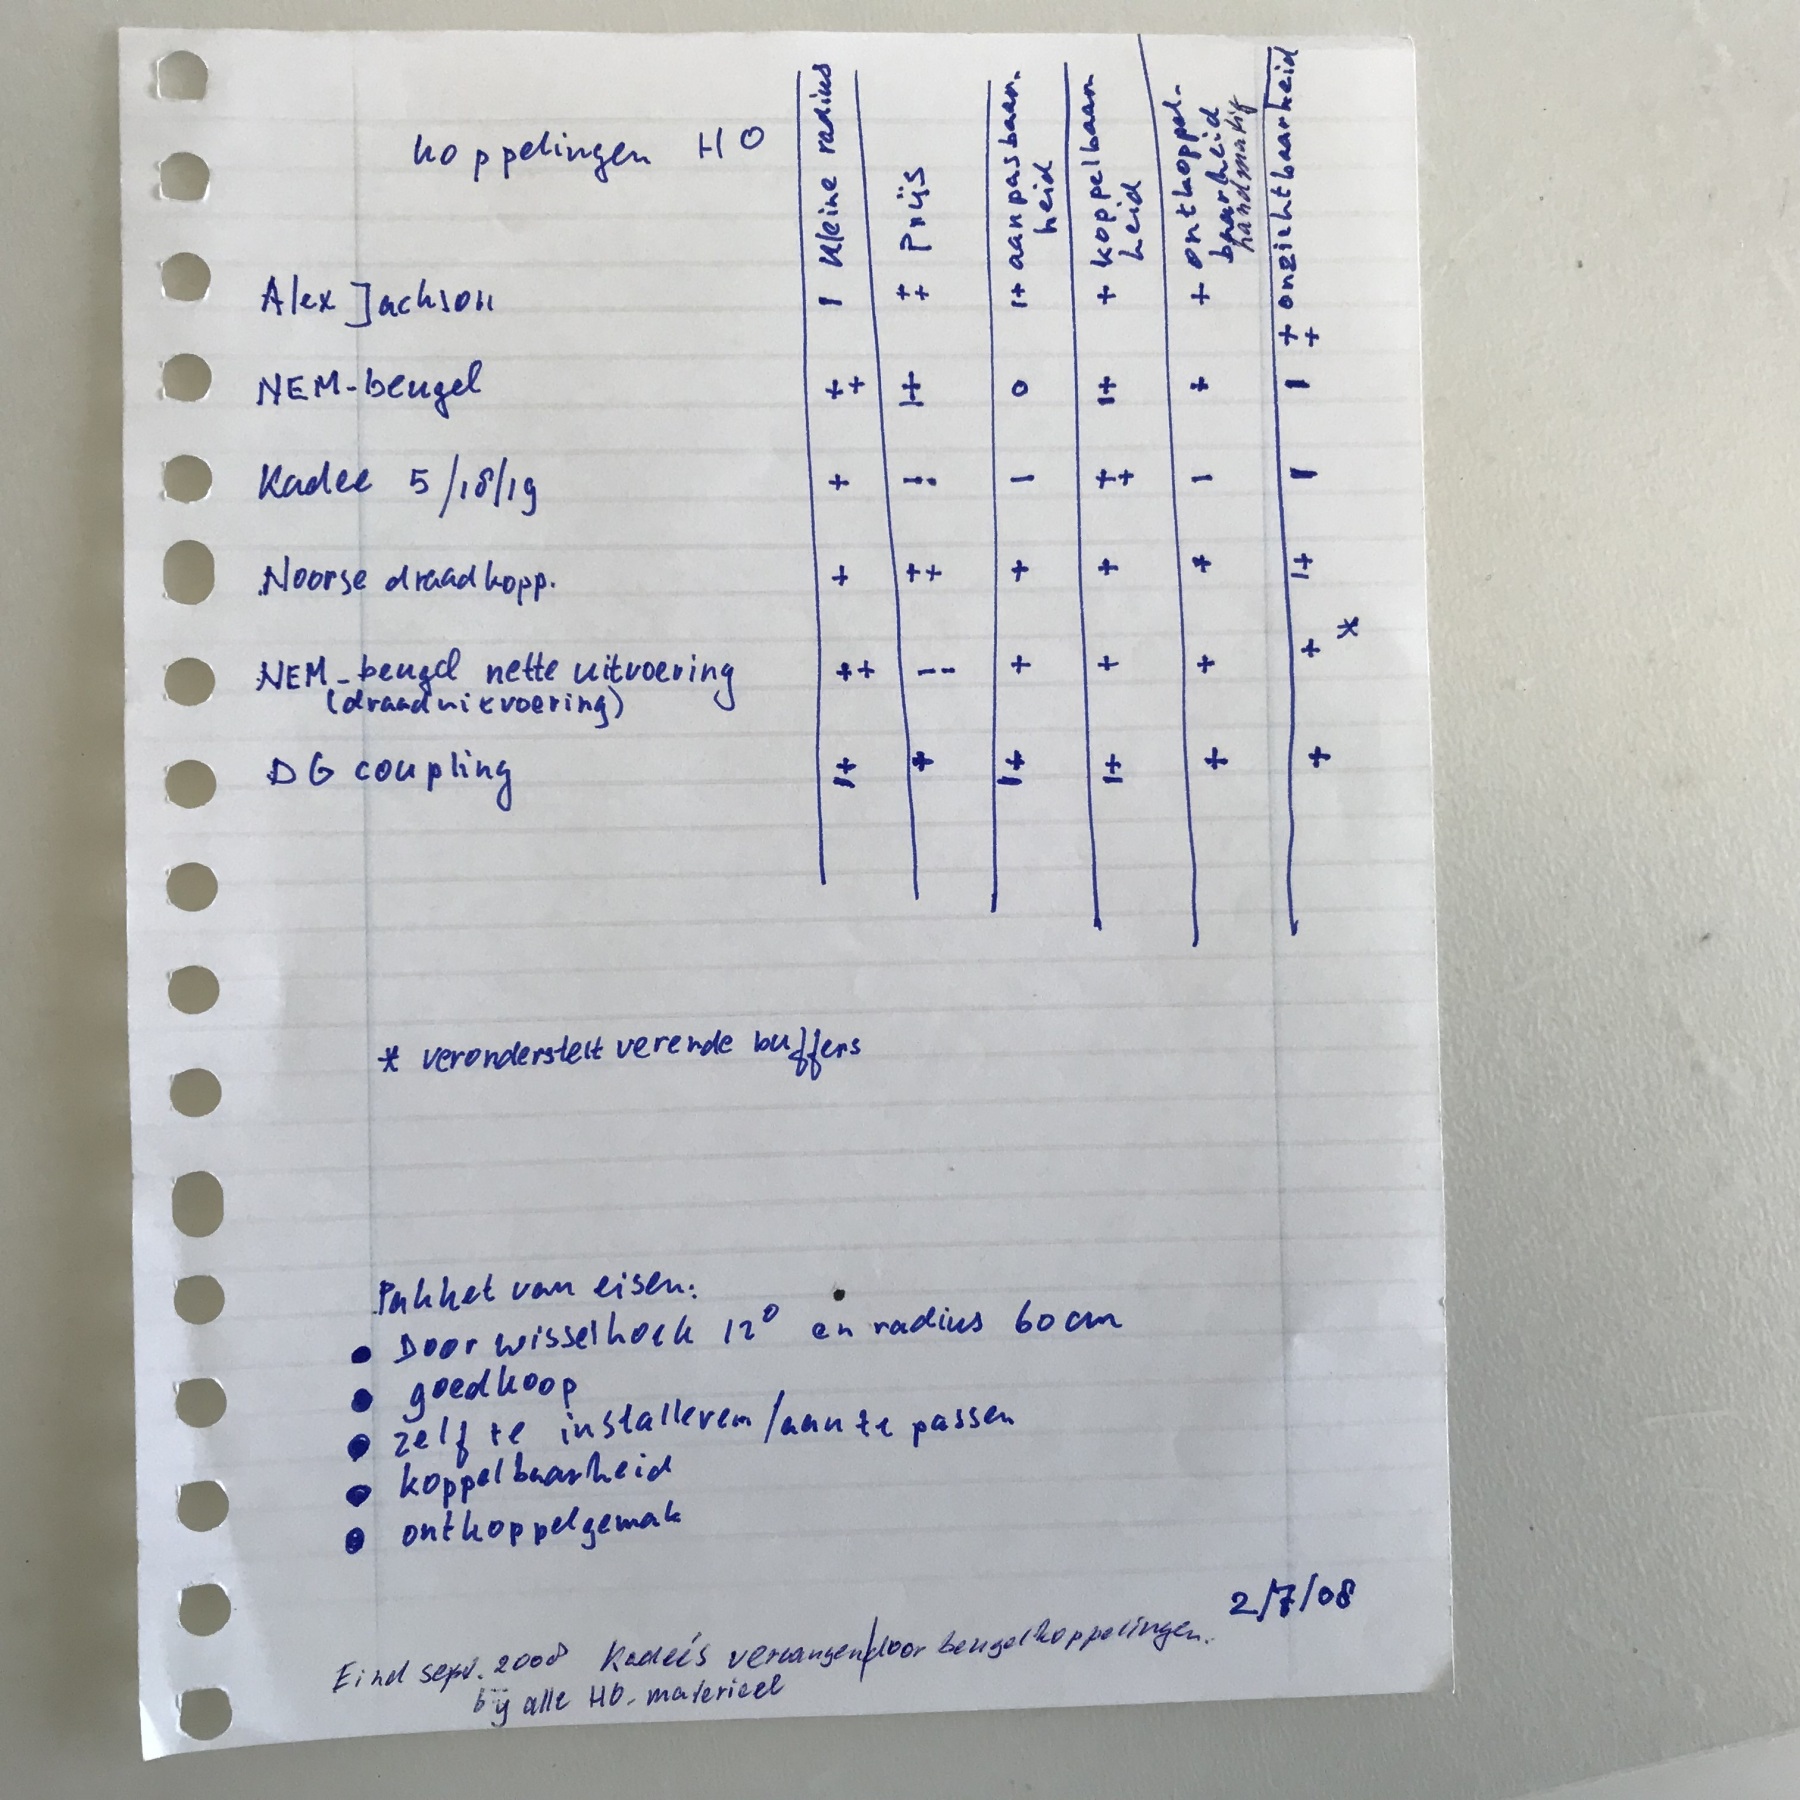 koppelingen HO
kleine radius
Prijs
aanpasbaar-
heid
koppelbaar-
heid
ontkoppel-
baarheid
handmatig
onzichtbaarheid
Alex Jackson | ++ I+ + + ++
NEM-beugel ++ I+ o I+ + |
Kadee 5/18/19 + -- - ++ - |
Noorse draadkopp. + ++ + + + I+
NEM-beugel nette uitvoering ++ -- + + + + *
(draaduitvoering)
DG coupling I+ + I+ I+ + +
* veronderstelt verende buffers
Pakket van eisen:
• Door wisselhoek 12° en radius 60 cm
• goedkoop
• zelf te installeren/aan te passen
• koppelbaarheid
• ontkoppelgemak
2/7/08
Eind sept. 2008 Kadee's vervangen door beugelkoppelingen.
bij alle HO-materieel